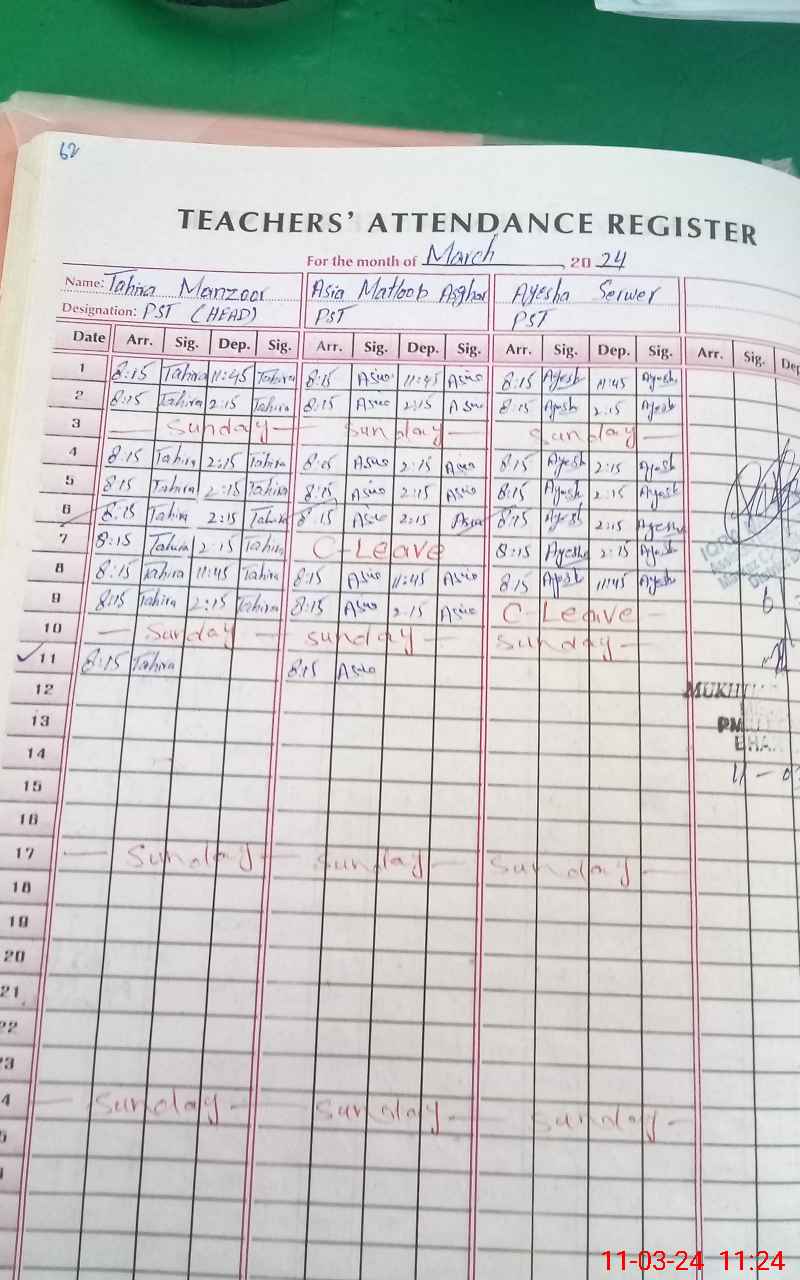 62
TEACHERS' ATTENDANCE REGISTER
For the month of March 2024
Name: Tahira Manzoor Asia Matloob Asghar Ayesha Serwer
Designation: PST (HEAD) PST PST
Date Arr. Sig. Dep. Sig. Arr. Sig. Dep. Sig. Arr. Sig. Dep. Sig. Arr. Sig. Dep
1 8:15 Tahira 11:45 Tahira 8:15 Asia 11:45 Asia 8:15 Ayesh 11:45 Ayesh
2 8:15 Tahira 2:15 Tahira 8:15 Asia 2:15 Asia 8:15 Ayesh 2:15 Ayesh
3 — Sunday — Sunday — Sunday —
4 8:15 Tahira 2:15 Tahira 8:15 Asia 2:15 Asia 8:15 Ayesh 2:15 Ayesh
5 8:15 Tahira 2:15 Tahira 8:15 Asia 2:15 Asia 8:15 Ayesh 2:15 Ayesh
6 8:15 Tahira 2:15 Tahira 8:15 Asia 2:15 Asia 8:15 Ayesh 2:15 Ayesha
7 8:15 Tahira 2:15 Tahira C-Leave 8:15 Ayesha 2:15 Ayesh
8 8:15 Tahira 11:45 Tahira 8:15 Asia 11:45 Asia 8:15 Ayesh 11:45 Ayesh
9 8:15 Tahira 2:15 Tahira 8:15 Asia 2:15 Asia C-Leave — 6
10 — Sunday — Sunday — Sunday —
11 8:15 Tahira 8:15 Asia
12
13
14
15
16
17 — Sunday — Sunday — Sunday —
18
19
20
21
22
23
4 — Sunday — Sunday — Sunday —
11-03-24 11:24